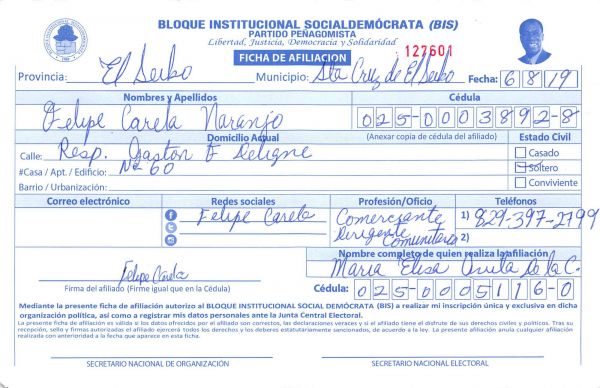 BLOQUE INSTITUCIONAL SOCIALDEMÓCRATA (BIS)
PARTIDO PEÑAGOMISTA
Libertad, Justicia, Democracia y Solidaridad
FICHA DE AFILIACION 127601
Provincia: El Seibo Municipio: Sta Cruz de El Seibo Fecha: 6 8 19
Nombres y Apellidos Cédula
Felipe Carela Naranjo 025-0003892-8
Domicilio Actual (Anexar copia de cédula del afiliado) Estado Civil
Calle: Resp. Gaston F Deligne Casado
#Casa / Apt. / Edificio: Nº 60 Soltero
Barrio / Urbanización: Conviviente
Correo electrónico Redes sociales Profesión/Oficio Teléfonos
Felipe Carela Comerciante 1) 829-397-2799
Dirigente Comunitario 2)
Nombre completo de quien realiza la afiliación
Maria Elisa De la C.
Felipe Carela
Firma del afiliado (Firme igual que en la Cédula) Cédula: 025-0005116-0
Mediante la presente ficha de afiliación autorizo al BLOQUE INSTITUCIONAL SOCIAL DEMÓCRATA (BIS) a realizar mi inscripción única y exclusiva en dicha
organización política, así como a registrar mis datos personales ante la Junta Central Electoral.
La presente ficha de afiliación es válida si los datos ofrecidos por el afiliado son correctos, las declaraciones veraces y si el afiliado tiene el disfrute de sus derechos civiles y políticos. Tras su
recepción, sello y firmas autorizadas el afiliado ejercerá todos los derechos y los deberes estatutariamente sancionados, de acuerdo a la ley. La presente afiliación anula cualquier afiliación
realizada con anterioridad a la fecha que aparece en esta ficha.
SECRETARIO NACIONAL DE ORGANIZACIÓN SECRETARIO NACIONAL ELECTORAL